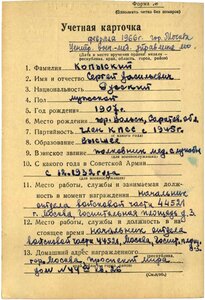 Форма №
(Заполнять четко без помарок)
Учетная карточка
февраля 1966 г. гор. Москва
(Дата и место вручения орденов и медалей — республика, край, область, город, район)
1. Фамилия Копыский
2. Имя и отчество Сергей
3. Национальность Русский
4. Пол мужской
5. Год рождения 1907 г.
6. Место рождения гор. Вольск, Саратовской обл.
7. Партийность Член КПСС с 1945 г.
8. Образование высшее
9. Воинское звание полковник мед. службы
10. С какого года в Советской Армии
с 1932 года
11. Место работы, службы и занимаемая должность в момент награждения начальник
отдела войсковой части 44521
г. Москва, Госпитальная площадь д. 3
12. Место работы, службы и должность в настоящее время начальник отдела
войсковой части 44521, Москва, Госпит. площ.
13. Домашний адрес награжденного
гор. Москва, проспект Мира
дом №